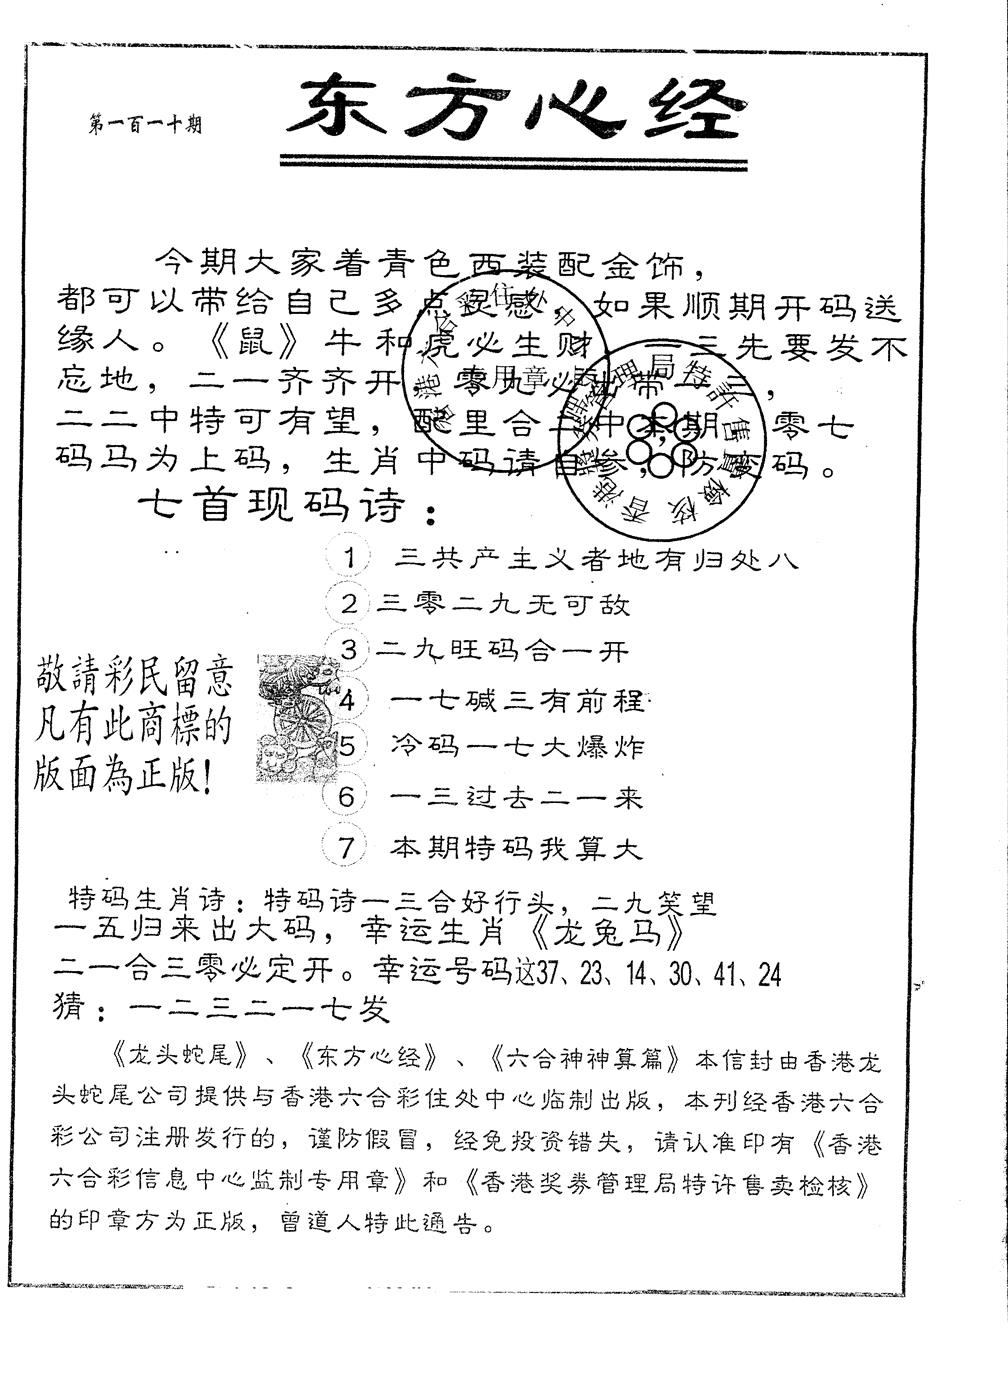 东方心经
第一百一十期
今期大家着青色西装配金饰，
都可以带给自己多点灵感，如果顺期开码送
缘人。《鼠》牛和虎必生财，一三先要发不
忘地，二一齐齐开，零九必出带二三，
二二中特可有望，配里合二中本期，零七
码马为上码，生肖中码请自参，防变码。
七首现码诗：
1 三共产主义者地有归处八
2 三零二九无可敌
3 二九旺码合一开
4 一七碱三有前程
5 冷码一七大爆炸
6 一三过去二一来
7 本期特码我算大
敬請彩民留意
凡有此商標的
版面為正版！
特码生肖诗：特码诗一三合好行头，二九笑望
一五归来出大码，幸运生肖《龙兔马》
二一合三零必定开。幸运号码这37、23、14、30、41、24
猜：一二三二一七发
《龙头蛇尾》、《东方心经》、《六合神神算篇》本信封由香港龙
头蛇尾公司提供与香港六合彩住处中心临制出版，本刊经香港六合
彩公司注册发行的，谨防假冒，经免投资错失，请认准印有《香港
六合彩信息中心监制专用章》和《香港奖券管理局特许售卖检核》
的印章方为正版，曾道人特此通告。
用章
香港獎券管理局特許售賣檢核